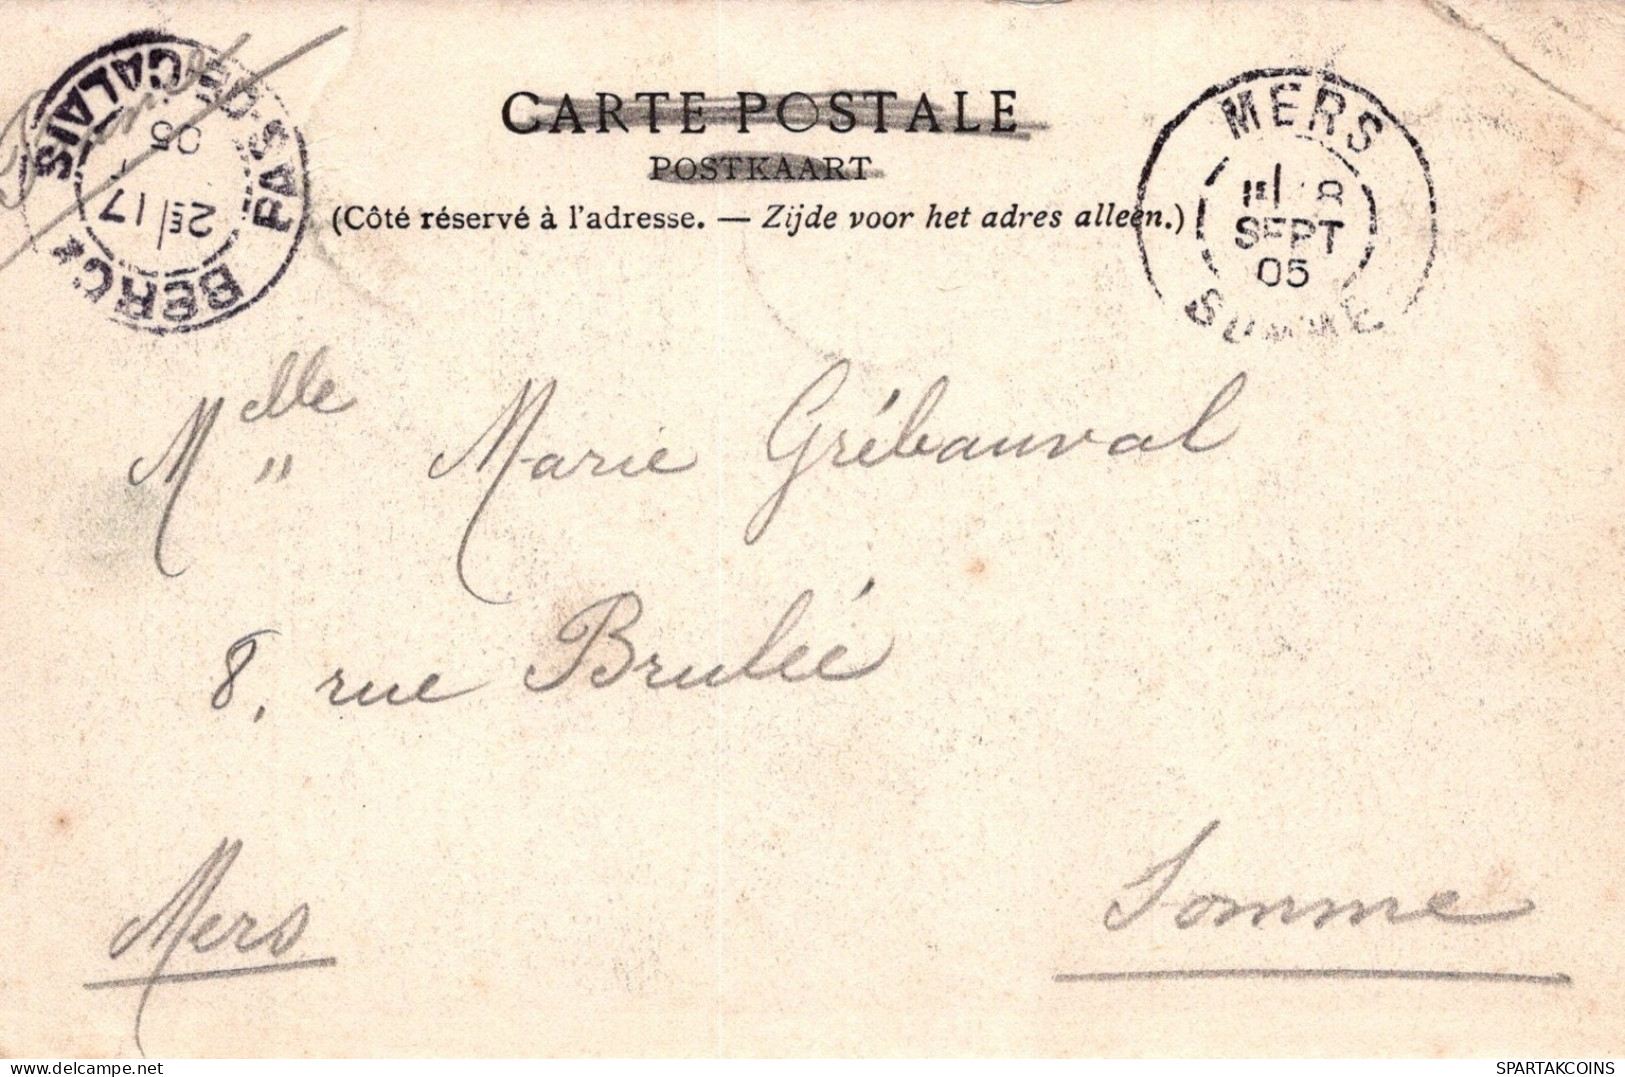 CARTE POSTALE
POSTKAART
(Côté réservé à l'adresse. — Zijde voor het adres alleen.)
BERCK PAS-DE-CALAIS
2E/17
05
MERS
8
SEPT
05
SOMME
Melle Marie Grébauval
8, rue Brulée
Mers Somme
delcampe.net
SPARTAKCOINS